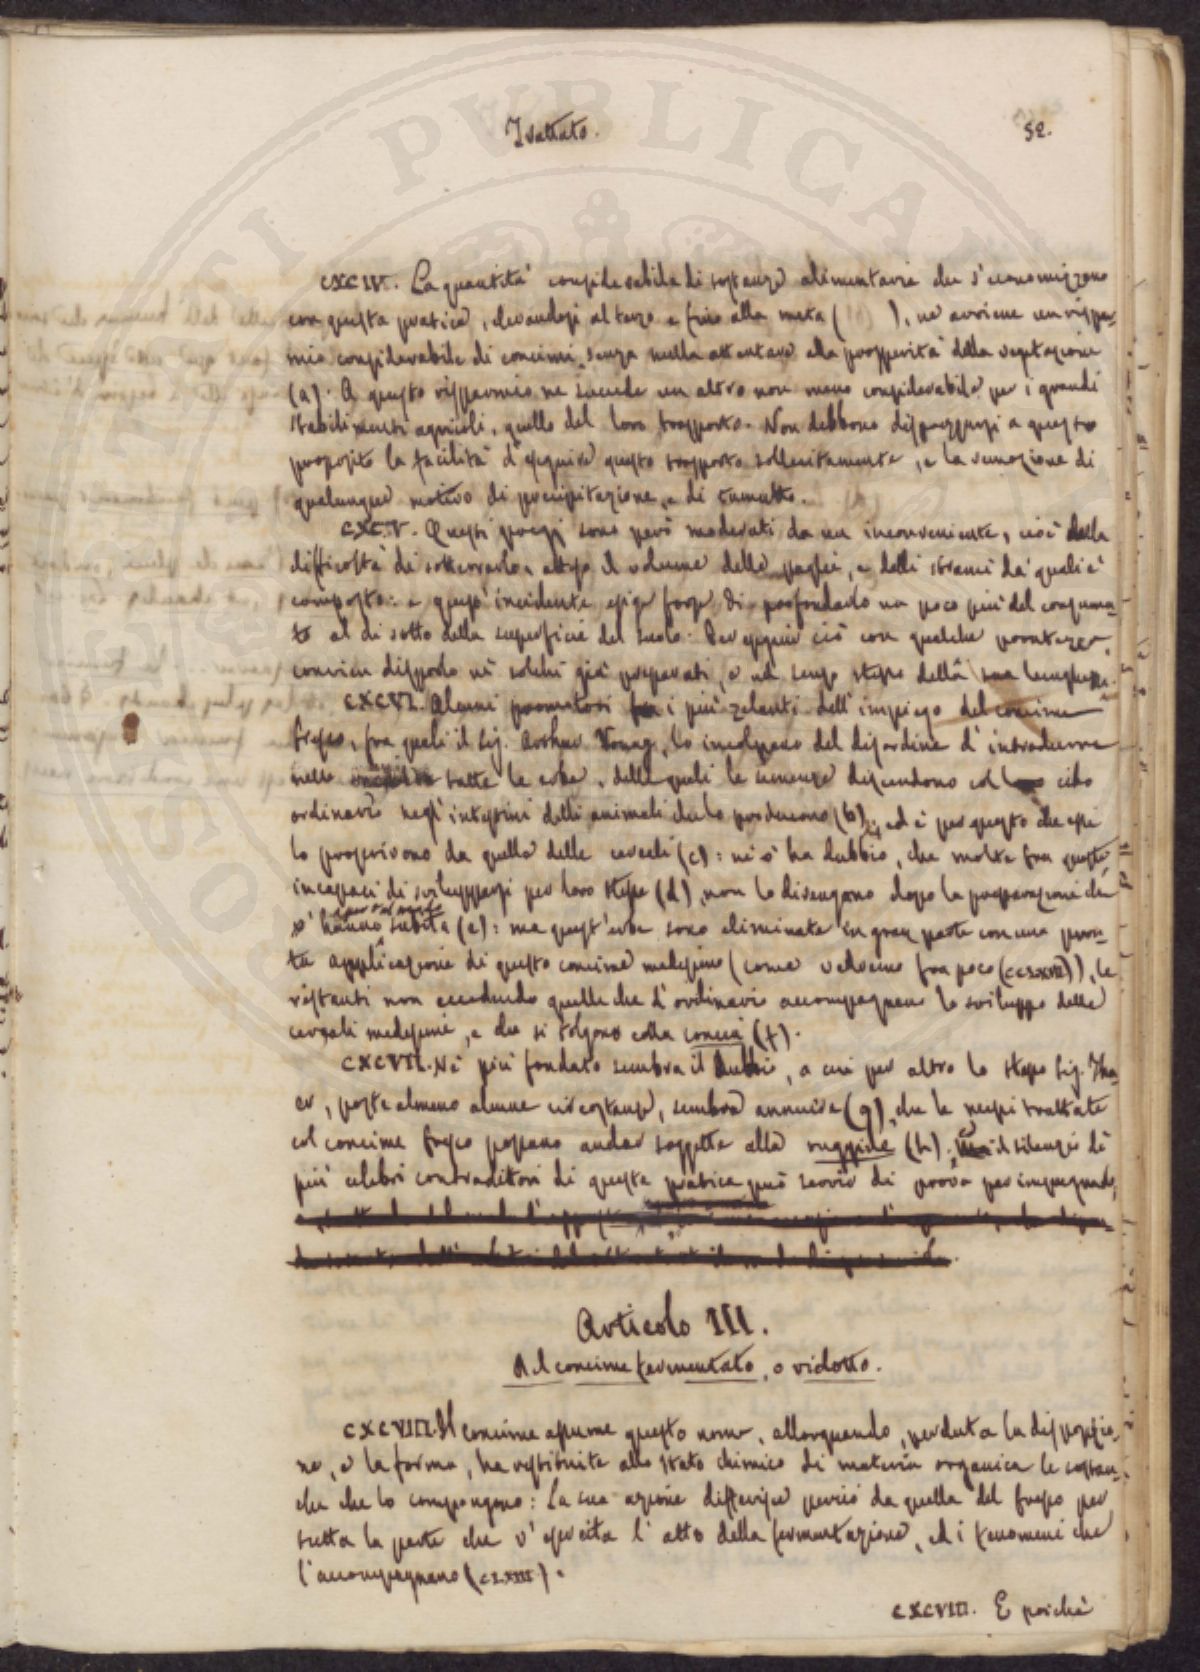 Trattato.
52.
CXCIV. La quantità considerabile di sostanze alimentarie che s'economizzono
con questa pratica, elevandosi al terzo e fino alla metà ( ), ne avviene un rispar-
mio considerabile di concimi, senza nulla attentare alla prosperità della vegetazione
(a). A questo risparmio ne succede un altro non meno considerabile per i grandi
stabilimenti agricoli, quello del loro trasporto. Non debbono disprezzarsi a questo
proposito la facilità d'eseguire questo trasporto sollecitamente, e la rimozione di
qualunque motivo di precipitazione, e di tumulto.
CXCV. Questi pregj sono però moderati da un inconveniente, cioè dalla
difficoltà di sotterrarlo, atteso il volume delle paglie, e delli strami da' quali è
composto: e quest'incidente esige forse di profondarlo un poco più del consuma-
to al di sotto della superficie del suolo. Per eseguir ciò con qualche prontezza,
convien disporlo ne' solchi già preparati, e nel senso stesso della sua lunghezza.
CXCVI. Alcuni promotori i più zelanti dell'impiego del concime
fresco, fra quali il Sig. Arthur Young, lo incolpano del disordine d'introdurre
nelle tutte le erbe, delle quali le semenze discendono col cibo
ordinario negl'intestini delli animali che lo producono (b); ed è per questo che essi
lo proscrivono da quella delle cereali (c): nè v'ha dubbio, che molte fra queste
incapaci di svilupparsi per loro stesse (d), non lo divengano dopo la preparazione che
v'hanno subita (e): ma quest'erbe sono eliminate in gran parte con una pron-
ta applicazione di questo concime medesimo (come vedremo fra poco (CCLXXVII)), le
restanti non eccedendo quelle che d'ordinario accompagnano lo sviluppo delle
cereali medesime, e che si tolgono colla concia (f).
CXCVII. Nè più fondato sembra il dubbio, a cui per altro lo stesso Sig. Tha-
er, poste almeno alcune circostanze, sembra annuire (g), che le messi trattate
col concime fresco possano andar soggette alla ruggine (h). il silenzio di
più celebri contraditori di questa pratica può servir di prova per impugnarlo,
Articolo III.
Del concime fermentato, o ridotto.
CXCVIII. Il concime assume questo nome, allorquando, perduta la disposizio-
ne, e la forma, ha restituite allo stato chimico di materia organica le sostan-
che che lo compongono: La sua azione differisce perciò da quella del fresco per
tutta la parte che v'esercita l'atto della fermentazione, ed i fenomeni che
l'accompagnano (CLXIII).
CXCVIII. E poichè